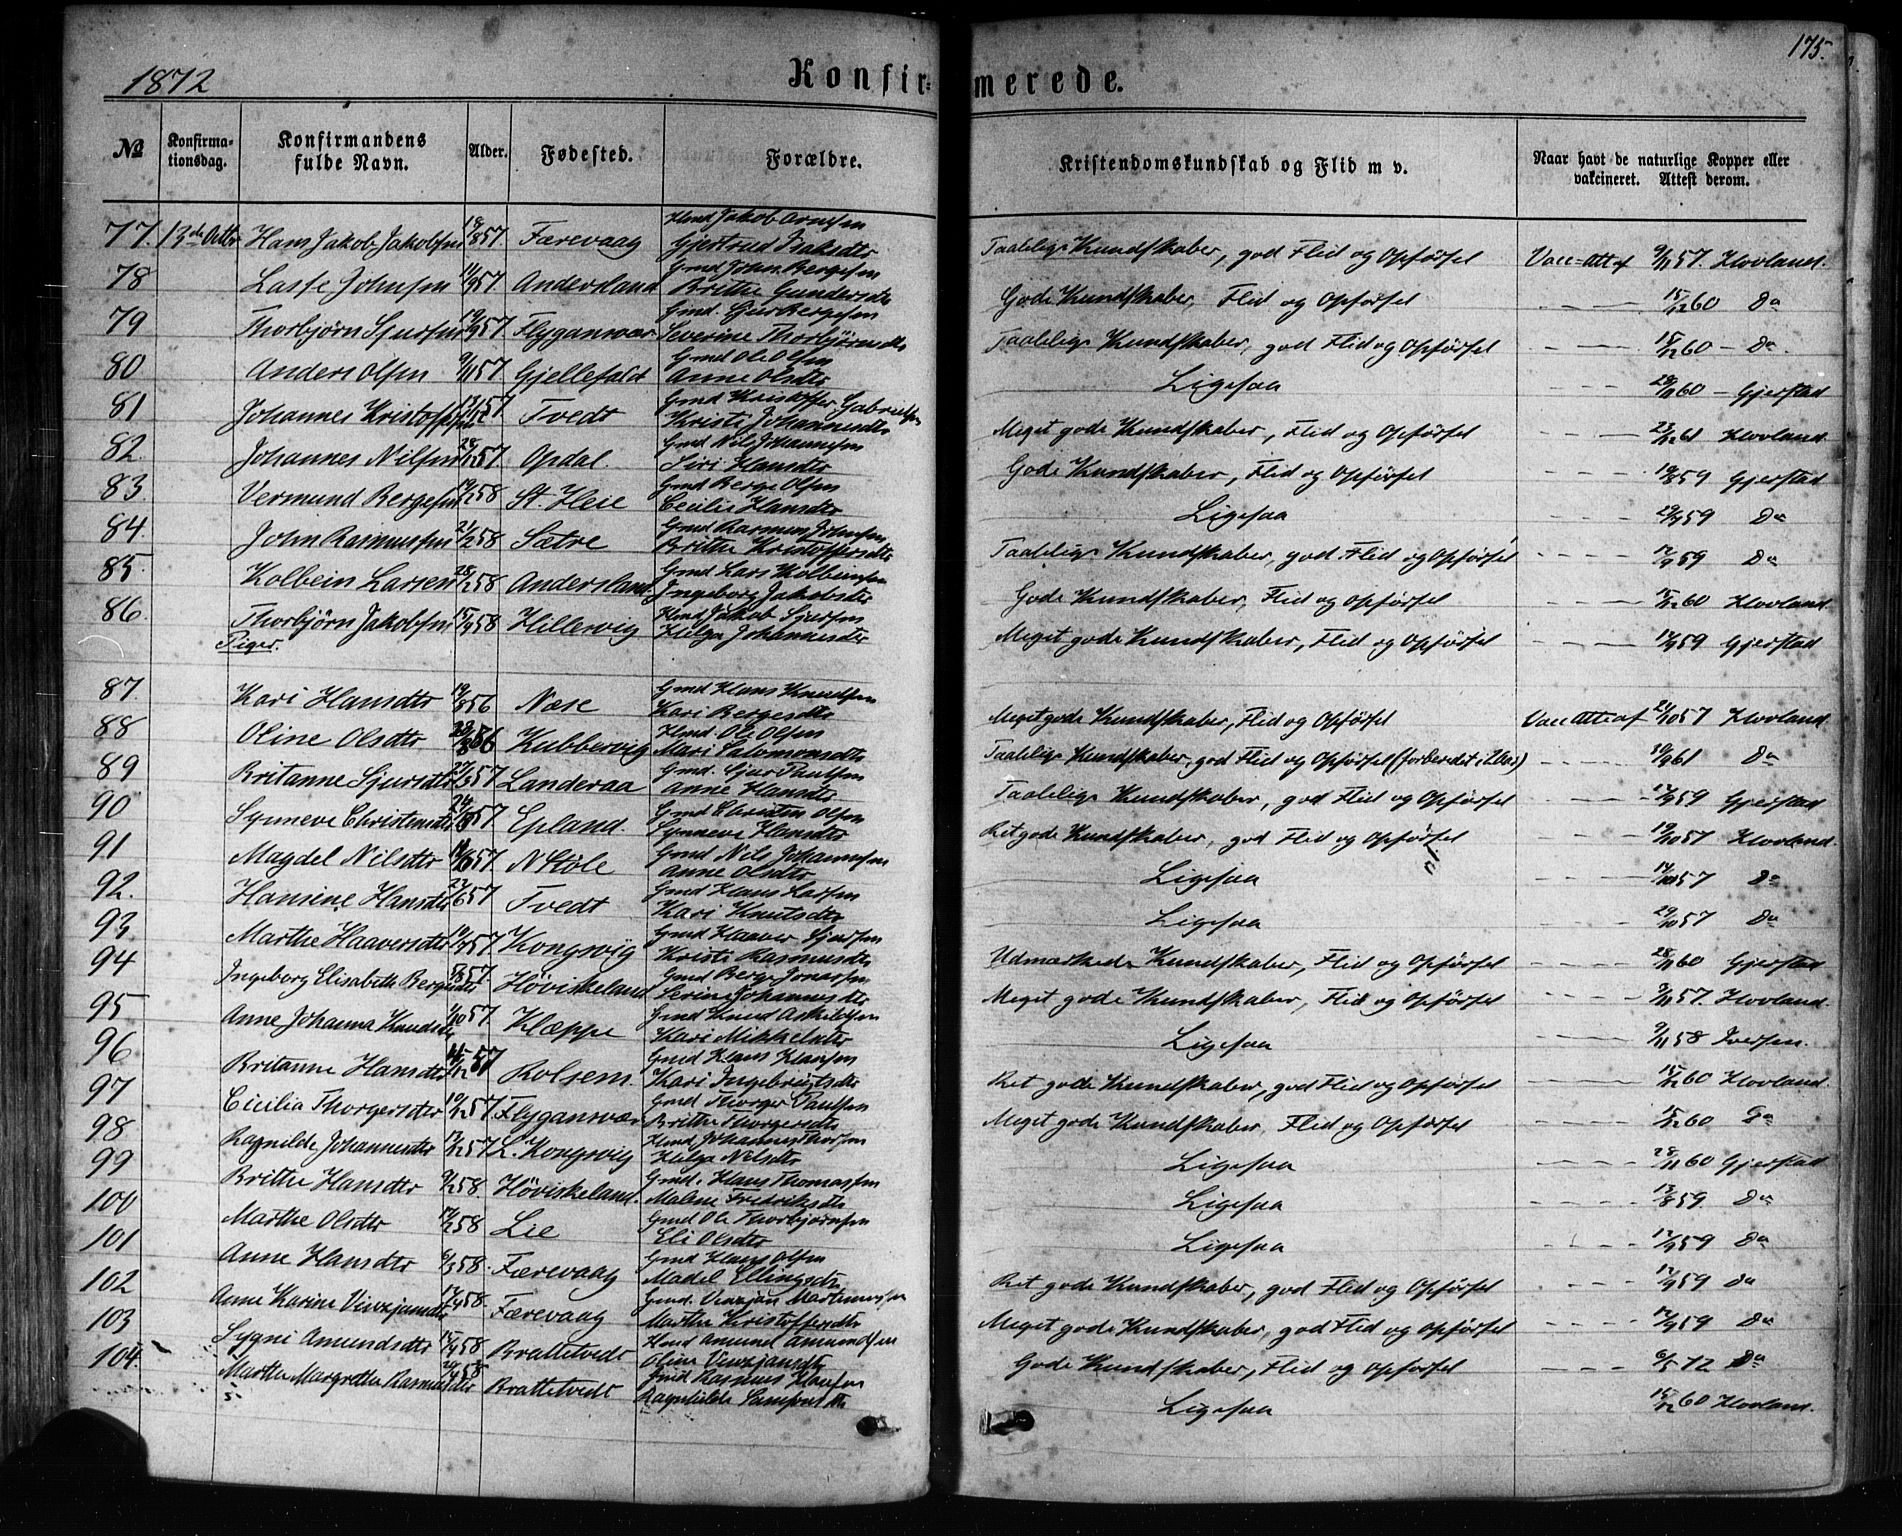 1872 Konfir= merede. 175.
No Konfirma-tionsdag. Konfirmandens fulde Navn. Alder. Fødested. Forældre. Kristendomskundskab og Flid m v. Naar havt de naturlige Kopper eller vakcineret. Attest derom.
77. 13de Octbr Hans Jakob Jakobsen 18/8 57 Færevaag Hmd Jakob Gjertrud Isaksdtr Taalelige Kundskaber, god Flid og Opførsel Vacc-Att af 9/11 57. Hovland.
78 Lasse Johnsen 11/9 57 Andersland Gmd John Bergesen Brithe Gundersdtr Gode Kundskaber, Flid og Opførsel 15/12 60 Do
79 Thorbjørn Sjursen 19/9 57 Flygansvær Gmd. Sjur Bergesen Severine Thorbjørnsdtr Taalelige Kundskaber, god Flid og Opførsel 15/12 60 - Do.
80 Anders Olsen 9/11 57 Gjellefald Gmd Ole Olsen Anne Olsdtr Ligesaa 28/11 60 - Gjerstad
81 Johannes Kristoffersen 57 Tvedt Gmd Kristoffer Gabrielsen Kristi Johannesdtr Meget gode Kundskaber, Flid og Opførsel 23/12 61 Hovland.
82. Johannes Nilsen 28/12 57. Opdal. Gmd Nils Johannesen Siri Hansdtr Gode Kundskaber, Flid og Opførsel 19/8 59 Gjerstad
83. Vermund Bergesen 58 St. Heie Gmd Berge Olsen Cecilie Hansdtr Ligesaa 59 Do
84. John Rasmussen 21/2 58 Sætre Gmd Rasmus Johnsen Brithe Kristoffersdtr Taalelige Kundskaber, god Flid og Opførsel 12/9 59 Do
85. Kolbein Larsen 28/2 58 Andersland. Gmd Lars Kolbeinsen Ingeborg Jakobsdtr Gode Kundskaber, Flid og Opførsel 15/12 60 Hovland.
86. Thorbjørn Jakobsen 15/4 58 Hillesvig Hmd Jakob Sjursen Helga Johannesdtr Meget gode Kundskaber, Flid og Opførsel 12/9 59 Gjerstad
Piger.
87. Kari Hansdtr 19/8 56 Næse Gmd Hans Knudsen Kari Bergesdtr Meget gode Kundskaber, Flid og Opførsel Vacc Att af 21/10 57 Hovland.
88 Oline Olsdtr 56 Kubbervig Hmd. Ole Olsen Mari Salomonsdtr Taalelige Kundskaber, god Flid og Opførsel (forberedet i 2 Aar) 30/9 61 Do
89 Britanne Sjursdtr 27/3 57 Landeraa Gmd. Sjur Paulsen Anne Hansdtr Taalelige Kundskaber, god Flid og Opførsel 12/9 59 Gjerstad
90 Synneve Christensdtr 57 Epland. Gmd Christen Olsen Synneve Hansdtr Ret gode Kundskaber, god Flid og Opførsel 19/10 57 Hovland.
91 Magdel Nilsdtr 57. N Støle Gmd Nils Johannesen Anne Olsdtr Ligesaa 57 Do
92. Hansine Hansdtr 27/6 57 Tvedt Gmd Hans Larsen Kari Knutsdtr Ligesaa 29/10 57 Do
93. Marthe Haaversdtr 57 Kongsvig Gmd Haaver Sjursen Kristi Rasmusdtr Udmærkede Kundskaber, Flid og Opførsel 28/11 60 Gjerstad
94 Ingeborg Elisabeth Bergesdtr 57. Høviskeland Gmd Berge Jonassen Serine Johannesdtr Meget gode Kundskaber, Flid og Opførsel 9/11 57 Hovland.
95 Anne Johanna Knudsdtr 57. Klæppe Gmd Knud Askildsen Kari Mikkelsdtr Ligesaa 9/11 58 Iversen.
96 Britanne Hansdtr 57 Rolsem. Gmd Hans Hansen Kari Ingebrigtsdtr Ret gode Kundskaber, god Flid og Opførsel 15/12 60 Hovland.
97 Cicilia Thorgersdtr 10/12 57. Flygansvær Gmd Thorger Paulsen Brithe Thorgersdtr Meget gode Kundskaber Flid og Opførsel 15/12 60 Do
98 Ragnilde Johannesdtr 57 L. Kongsvig Hmd Johannes Thorsen Helga Nilsdtr Ligesaa 28/11 60 Gjerstad
99 Brithe Hansdtr 9/2 58. Høviskeland. Gmd. Hans Thomassen Malene Fredriksdtr Ligesaa 59. Do
100 Marthe Olsdtr 58 Lie Gmd Ole Thorbjørnsen Eli Olsdtr Ligesaa 12/9 59 Do
101 Anne Hansdtr 6/3 58. Færevaag Gmd Hans Olsen Madel Ellingsdtr Ret gode Kundskaber, god Flid og Opførsel 12/9 59 Do
102 Anne Karine Vinzjansdtr 58. Færevaag Gmd. Vinzjan Martinussen Marthe Kristoffersdtr Meget gode Kundskaber, god Flid og Opførsel 12/9 59 Do
103 Sygni Amundsdtr 15/4 58 Brattetvedt Hmd Amund Amundsen Oline Vinzjansdtr Gode Kundskaber, Flid og Opførsel 6/5 72 Do
104 Marthe Margrethe Rasmusdtr 58 Brattetvedt Gmd Rasmus Hansen Ragnhilde Ligesaa 15/12 60 Hovland.